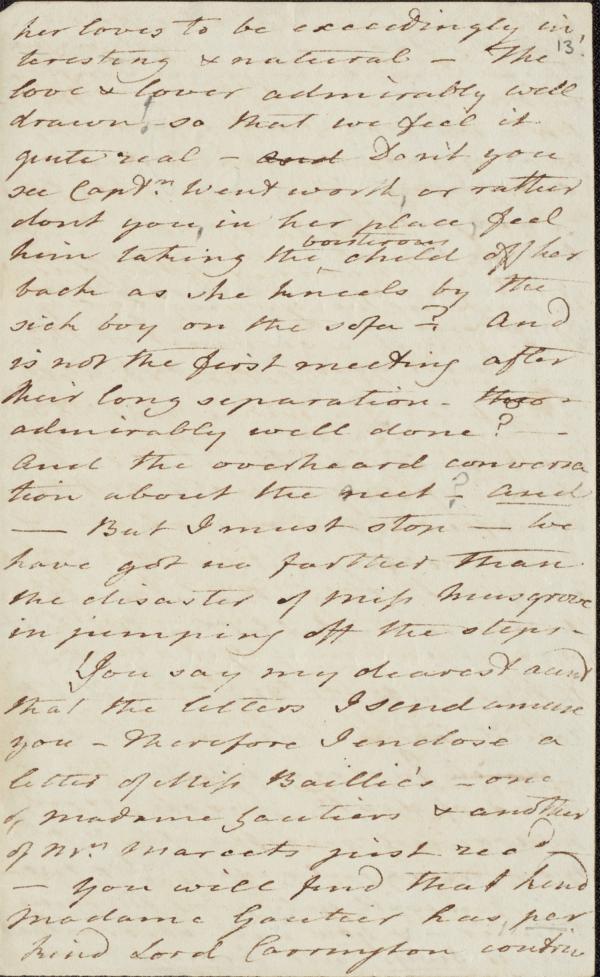 her loves to be exceedingly in
13!
teresting & natural – The
love & lover admirably well
drawn! so that we feel it
quite real – and Don't you
see Captn. Wentworth, or rather
dont you, in her place, feel
boisterous
him taking the child off her
back as she kneels by the
sick boy on the sofa – ? And
is not the first meeting after
their long separation –
admirably well done? –
And the overheard conversa
tion about the nut – ? and
— But I must stop — We
have got no farther than
the disaster of Miss Musgrove
in jumping off the steps –
You say my dearest aunt
that the letters I send amuse
you – Therefore I enclose a
letter of Miss Baillie's – one
of Madame Gautiers & another
of Mrs. Marcets just recd –
– You will find that kind
Madame Gautier has, per
kind Lord Carrington contriv